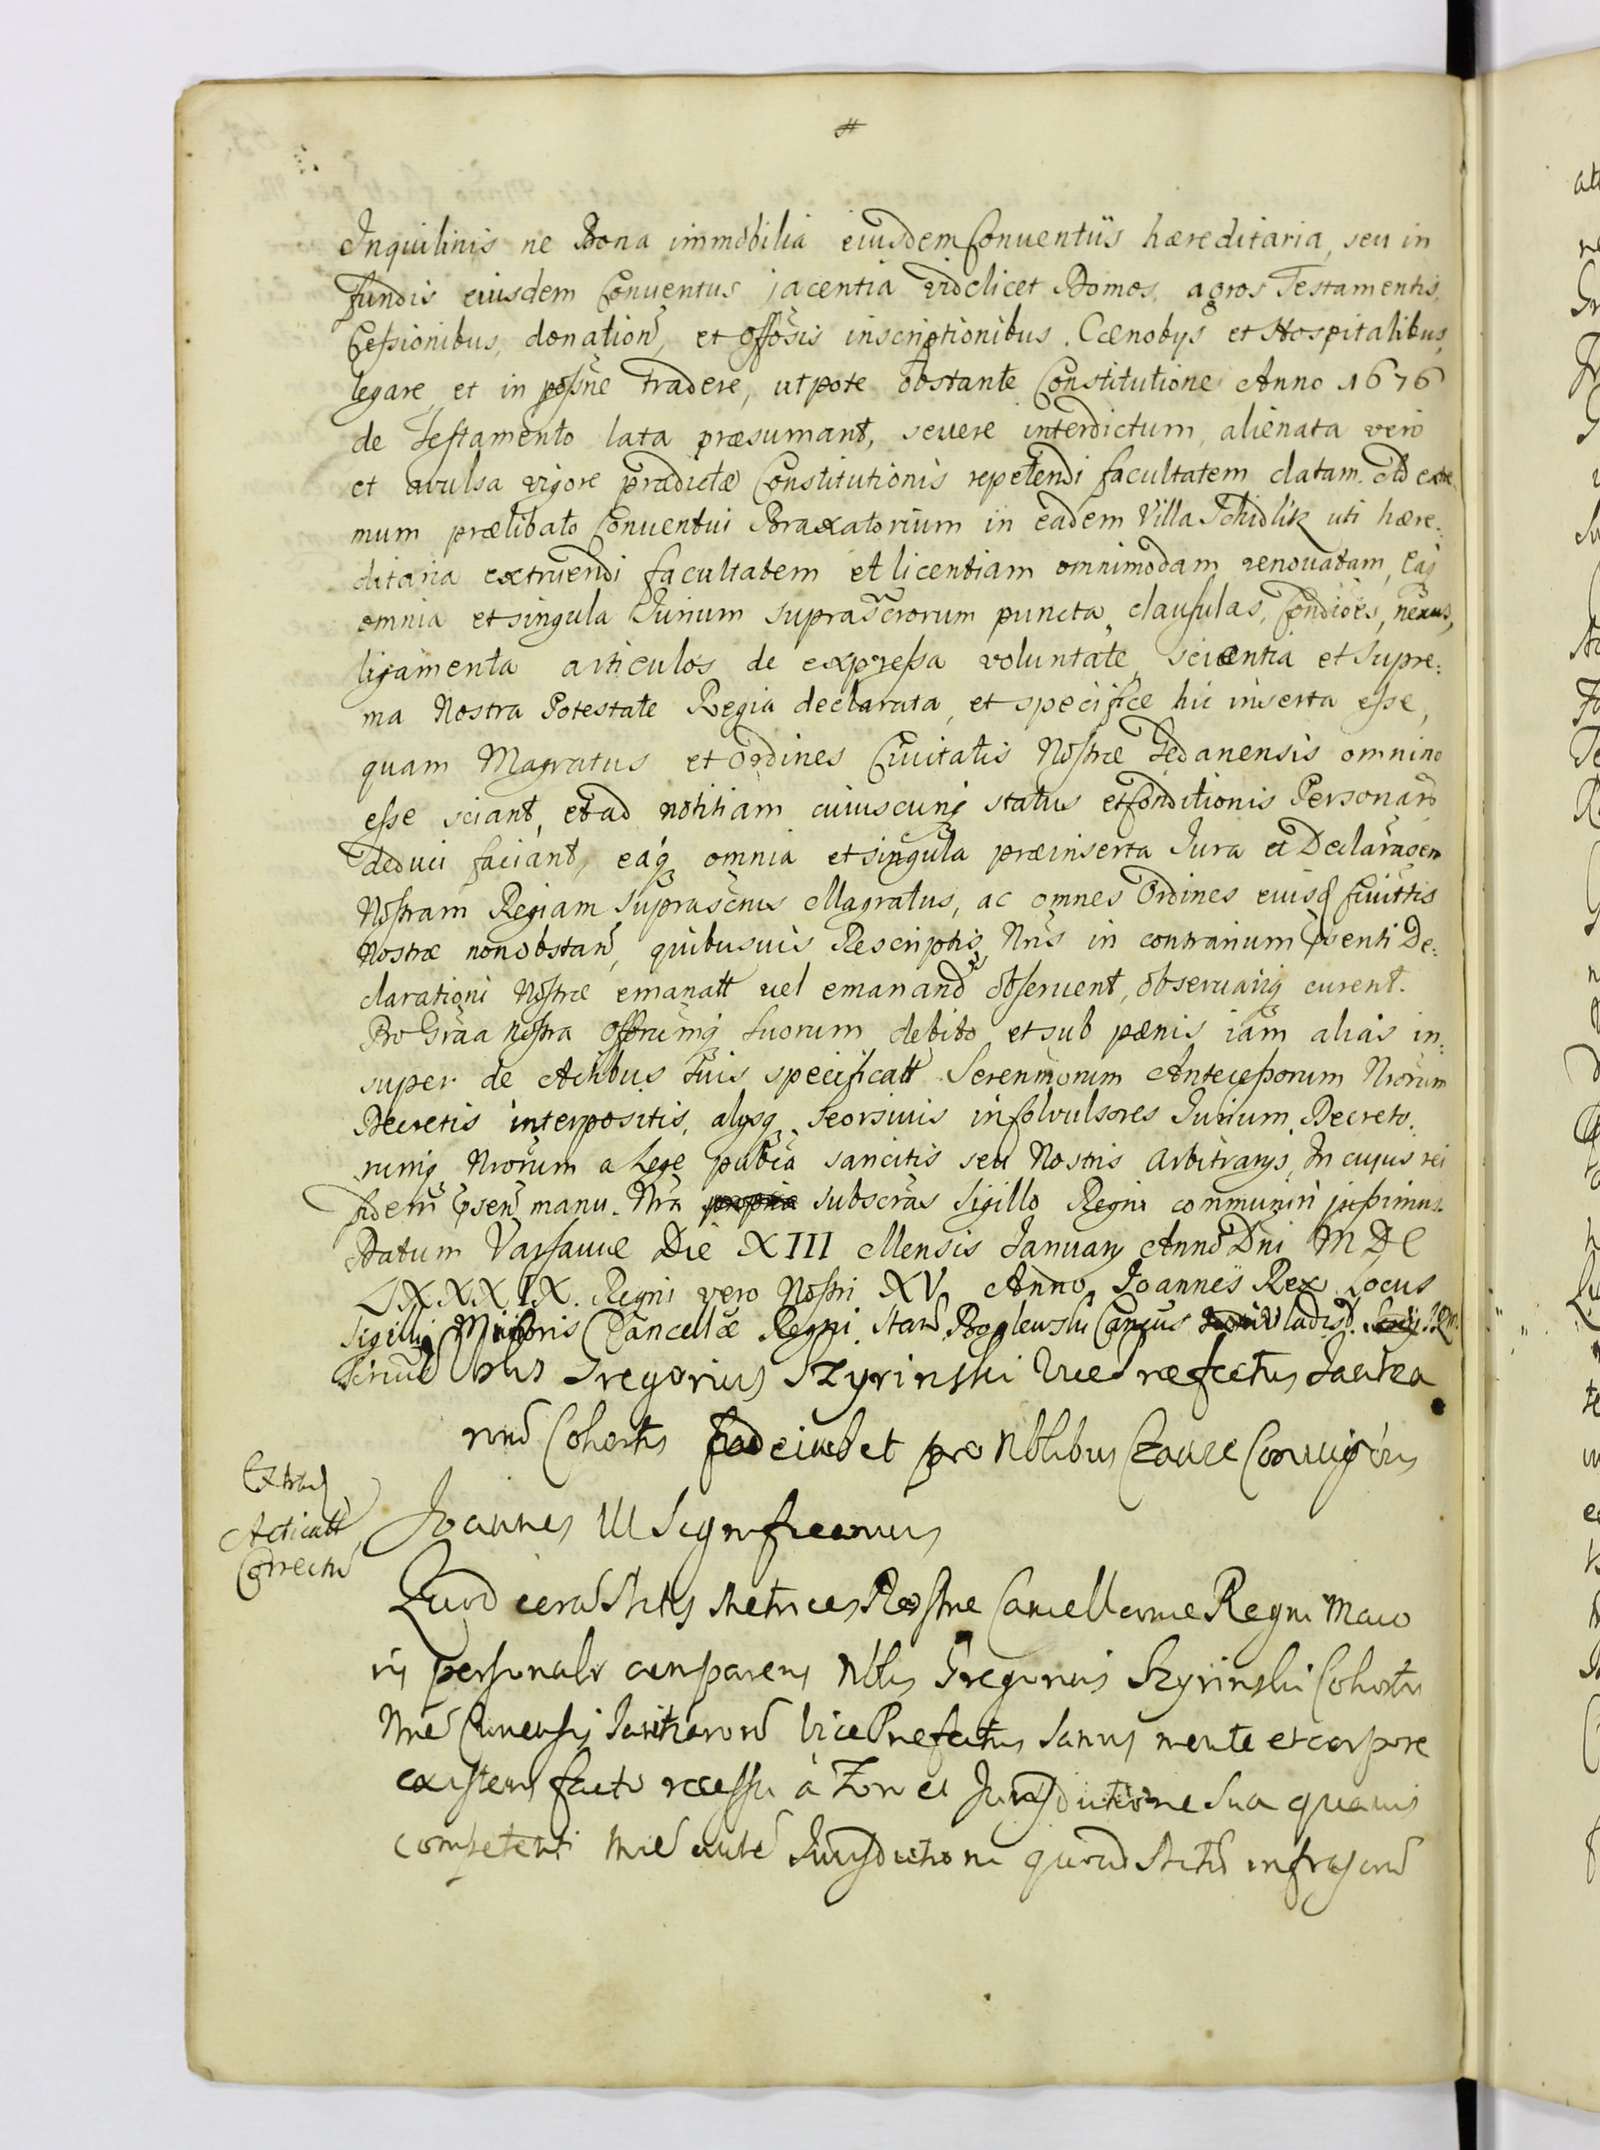 Inquilinis ne Bona immobilia eiusdem Conventüs hæreditaria, seu in
fundis eiusdem Conventus jacentia videlicet Domos, agros Testamentis,
Cessionibus, donation, et inscriptionibus. Cænobys et Hospitalibus,
legare, et in possne tradere, utpote obstante Constitutione Anno 1676
de Testamento lata præsumant, severe interdictum, alienata vero
et avulsa vigore prædictæ Constitutionis repetendi facultatem datam. Ad extre
mum prælibato Conventui Braxatorium in eadem Villa Schidlik uti hære:
ditaria extruendi facultatem et licentiam omnimodam renovatam, Eaq
omnia et singula Jurium suprascrorum puncta, clausulas, Condiões, nexus,
ligamenta articulos de expressa voluntate, scientia et supre:
ma Nostra Potestate Regia declarata, et specifice hic inserta esse,
quam Magratus et Ordines Civitatis Nostræ Gedanensis omnino
esse sciant, et ad notitiam cuiuscunq status et Conditionis Personarũ
deduci faciant, eaq omnia et singula præinserta Jura et Declaraõem
Nostram Regiam suprascrius Magratus, ac omnes Ordines eiusd Civittis
Nostræ nonobstan, quibusuis Rescriptis Nris in contrarium psenti De:
clarationi Nostræ emanatt vel emanand observent, observariq curent.
Pro Graa nostra suorum debito et sub pænis iam alias in:
super de Actibus suis specificatt Serenmorum Antecessorum Nrorum
Decretis interpositis, alysq seorsivis in Jurium Decreto:
rumq Nrorum a Lege publca sancitis seu Nostris Arbitrarys, In cujus rei
fidem psen manu Nra propria subscras Sigillo Regni communiri jussimus.
Datum Varsaviæ Die XIII Mensis January Anno Dni MDC
LXXXIX. Regni vero Nostri XV Anno, Joannes Rex Locus
Sigilli Minoris Cancellæ Regni
Gregorius Szyrinski VicePræfectus Janitza
Cohortis et pro Nblibus
Extrad
Acticatt
Correctũ
Joannes III Significamus
Quod coram Actis Metrices Nostræ Cancellariæ Regni Maio
ris personalr comparens Nblis Gregorius Szyrinski Cohortis
VicepræFectus sanus mente et corpore
existens facto recessu à Foro et Jurisdictione sua quavis
competenti Jurisdictioni quoad Actũ infrascrũ